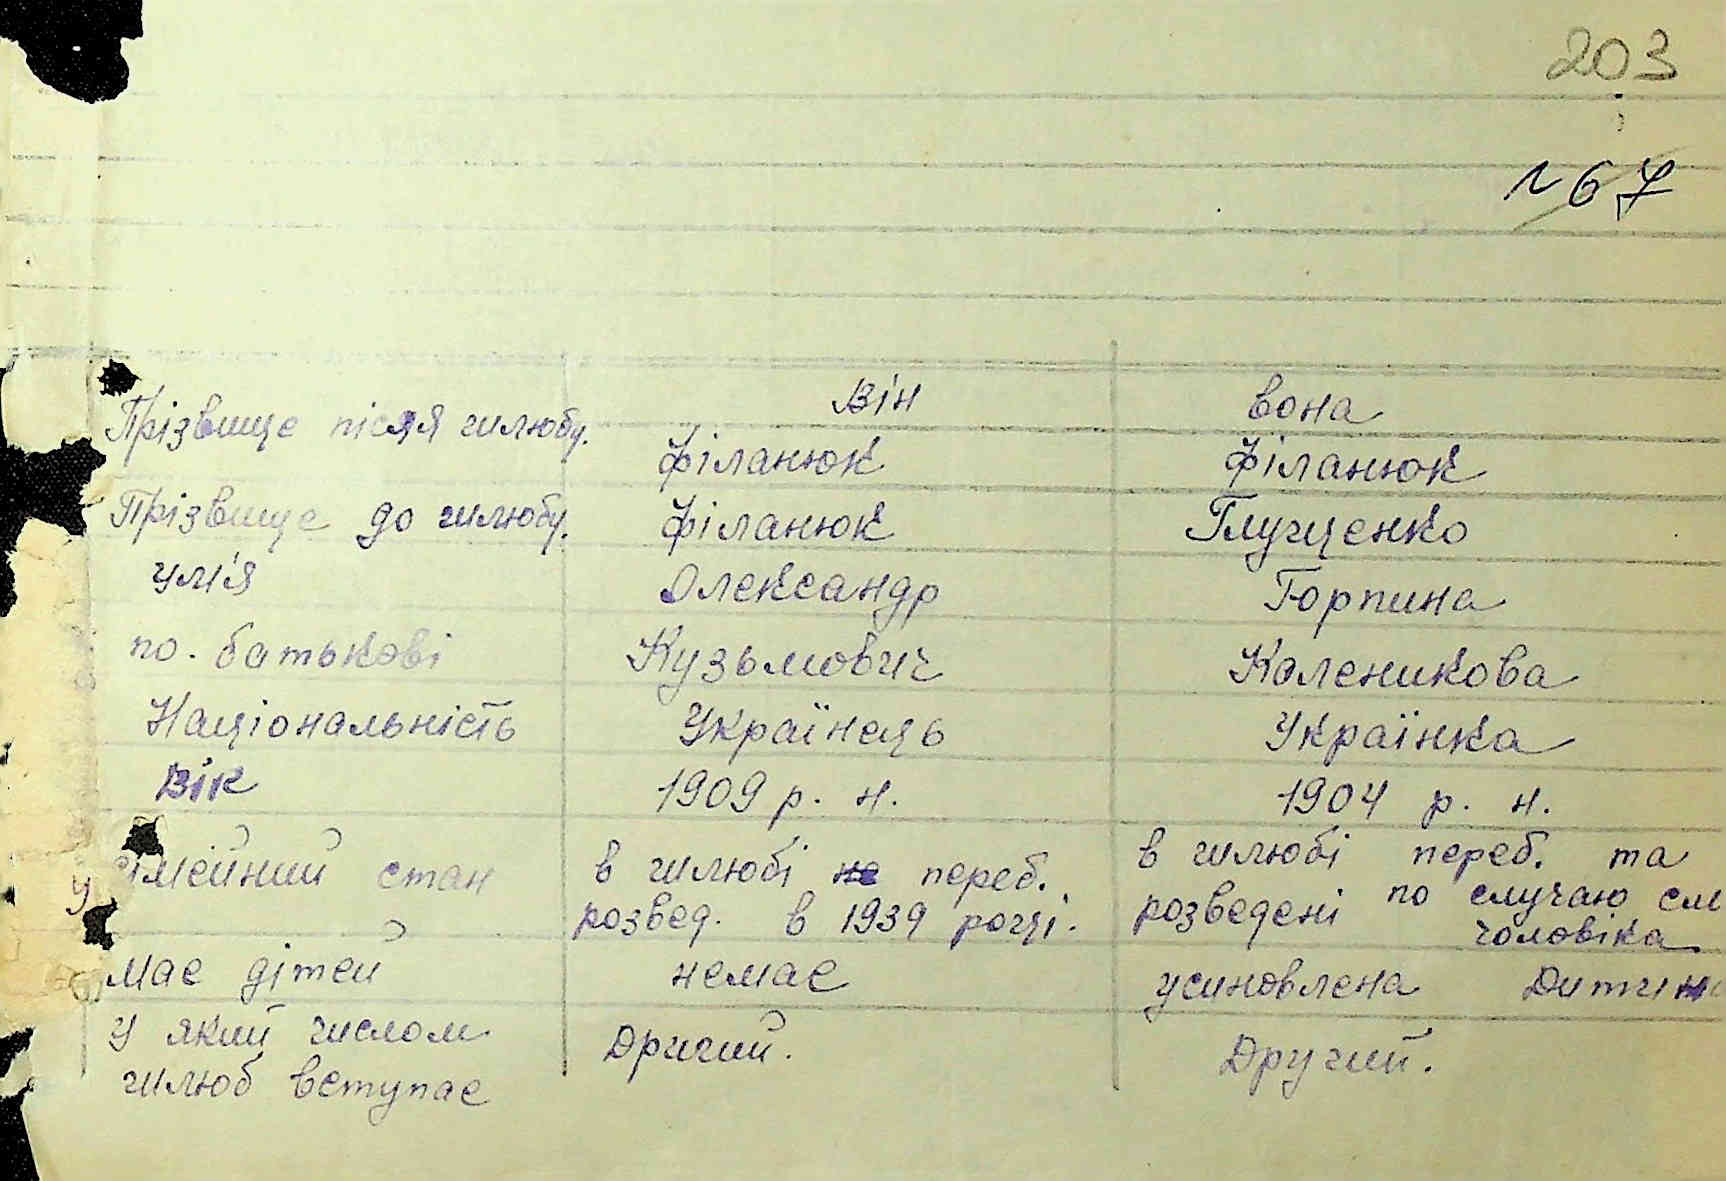 203
№ 67
Він вона
Прізвище після шлюбу. Філанюк Філанюк
Прізвище до шлюбу. Філанюк Глущенко
Умі'я Олександр Горпина
по. батькові Кузьмович Каленикова
Національність Українець Українка
Вік 1909 р. н. 1904 р. н.
сімейний стан в шлюбі не переб. в шлюбі переб. та
розвед. в 1939 році. розведені по случаю см
чоловіка
має дітей немає усиновлена Дитина
У який числом Дричий. Другий.
шлюб вступає